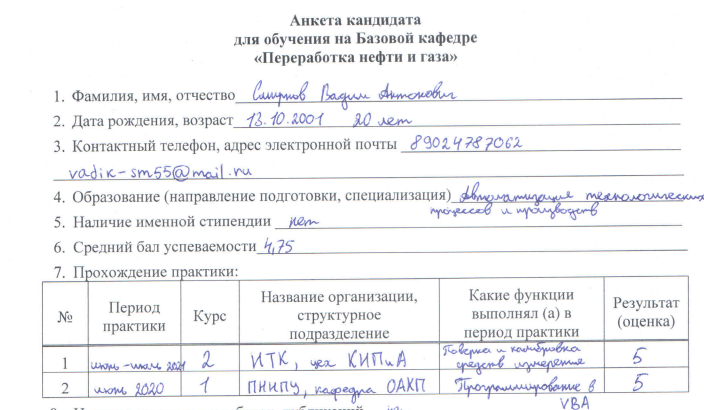 Анкета кандидата
для обучения на Базовой кафедре
«Переработка нефти и газа»
1. Фамилия, имя, отчество Смирнов Вадим Антонович
2. Дата рождения, возраст 13.10.2001 20 лет
3. Контактный телефон, адрес электронной почты 89024787062
vadik-sm55@mail.ru
4. Образование (направление подготовки, специализация) Автоматизация технологических
процессов и производств
5. Наличие именной стипендии нет
6. Средний бал успеваемости 4,75
7. Прохождение практики:
№ Период практики Курс Название организации, структурное подразделение Какие функции выполнял (а) в период практики Результат (оценка)
1 июнь-июль 2021 2 ИТК, цех КИПиА Поверка и калибровка средств измерения 5
2 июнь 2020 1 ПНИПУ, кафедра ОАХП Программирование в VBA 5